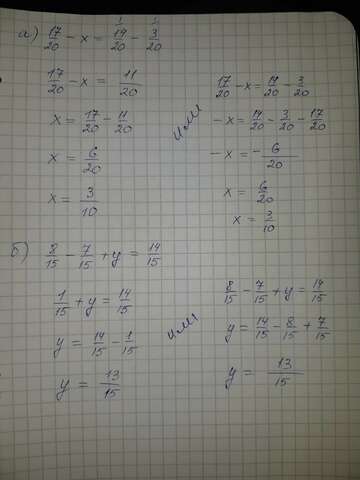 а) 17/20 - x = 14/20 - 3/20
17/20 - x = 11/20
x = 17/20 - 11/20
x = 6/20
x = 3/10
или
17/20 - x = 14/20 - 3/20
- x = 14/20 - 3/20 - 17/20
- x = - 6/20
x = 6/20
x = 3/10
б) 8/15 - 7/15 + y = 14/15
1/15 + y = 14/15
y = 14/15 - 1/15
y = 13/15
или
8/15 - 7/15 + y = 14/15
y = 14/15 - 8/15 + 7/15
y = 13/15